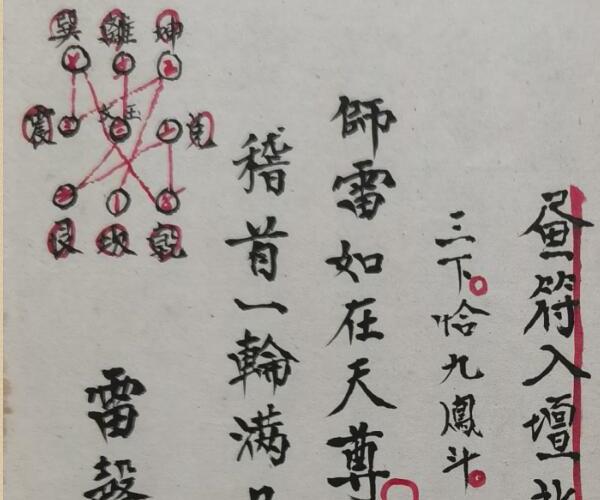 昼符入壇
三下。恰九鳳斗。
師雷如在天尊。
稽首一輪満
巽 離 坤
震 兌
艮 坎 乾
雷